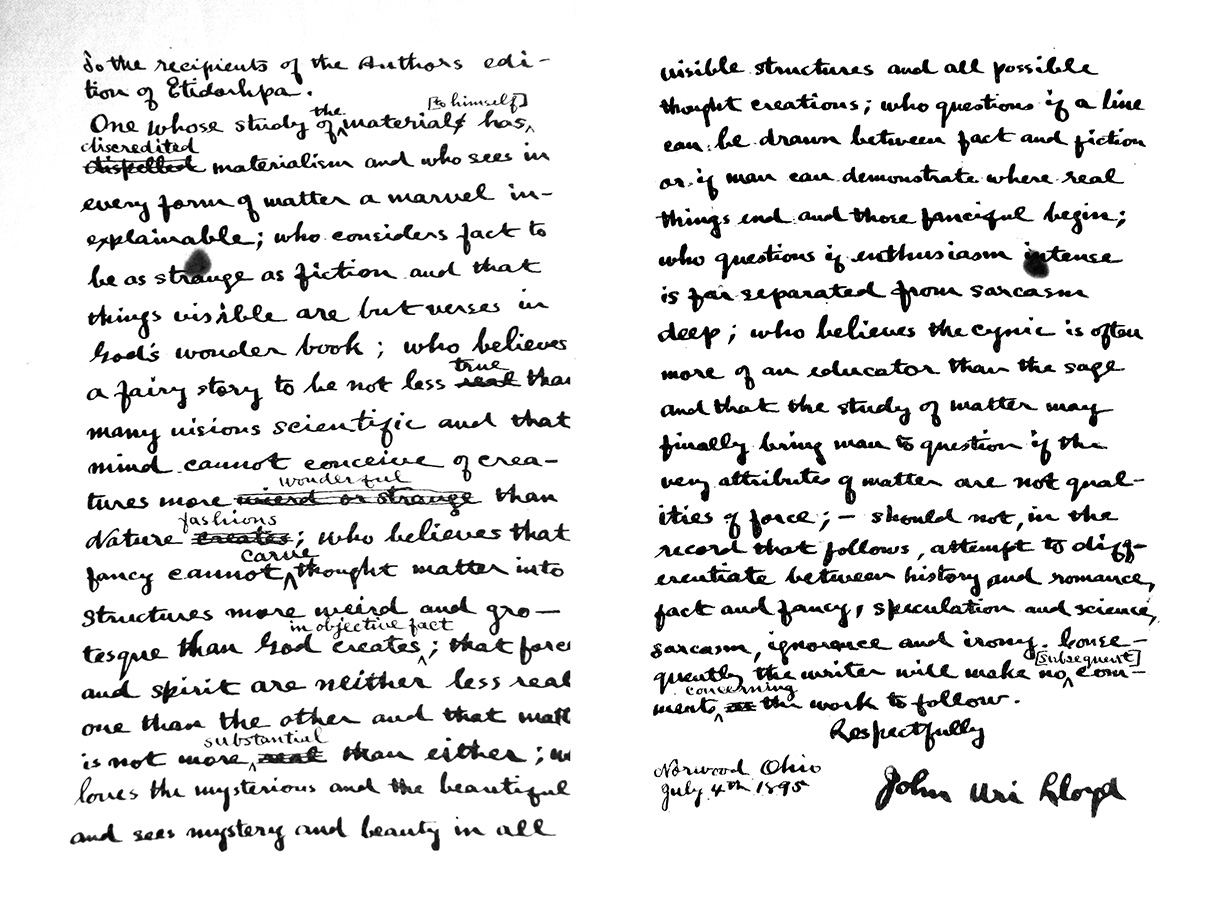 To the recipients of the Authors edi-
tion of Etidorhpa.
One whose study of ^the materials has ^[to himself]
discredited
dispelled materialism and who sees in
every form of matter a marvel in-
explainable; who considers fact to
be as strange as fiction and that
things visible are but verses in
God's wonder book; who believes
true
a fairy story to be not less real than
many visions scientific and that
mind cannot conceive of crea-
wonderful
tures more wierd or strange than
fashions
Nature creates; who believes that
carve
fancy cannot ^ thought matter into
structures more weird and gro-
in objective fact
tesque than God creates ^; that force
and spirit are neither less real
one than the other and that matt
substantial
is not more ^ real than either; w
loves the mysterious and the beautiful
and sees mystery and beauty in all
visible structures and all possible
thought creations; who questions if a line
can be drawn between fact and fiction
or if man can demonstrate where real
things end and those fanciful begin;
who questions if enthusiasm intense
is far separated from sarcasm
deep; who believes the cynic is often
more of an educator than the sage
and that the study of matter may
finally bring man to question if the
very attributes of matter are not qual-
ities of force; - should not, in the
record that follows, attempt to diff-
erentiate between history and romance,
fact and fancy, speculation and science,
sarcasm, ignorance and irony. Conse-
[subsequent]
quently the writer will make no ^ com-
concerning
ments ^ the work to follow.
Respectfully
Norwood Ohio
July 4th 1895
John Uri Lloyd